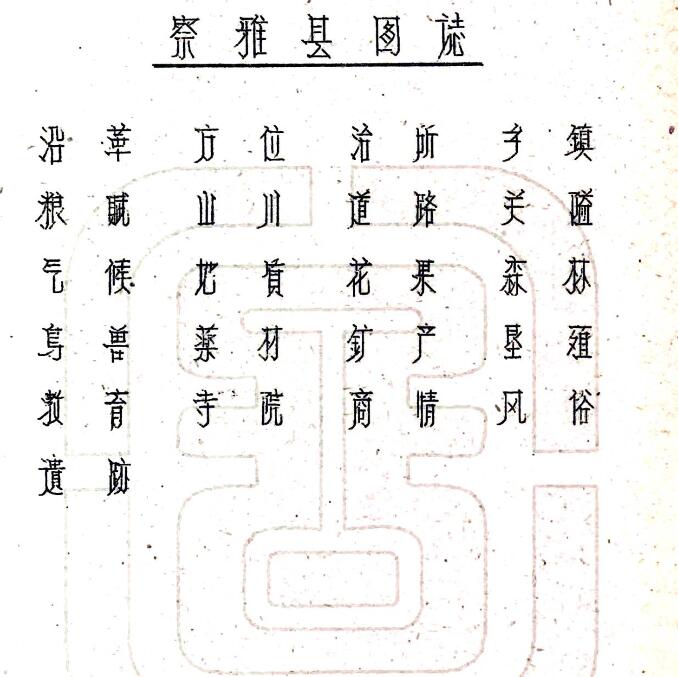 察雅县图誌
沿革 方位 治所 乡镇
粮赋 山川 道路 关隘
气候 地質 花果 森林
鸟兽 药材 矿产 垦殖
教育 寺院 商情 风俗
遺跡